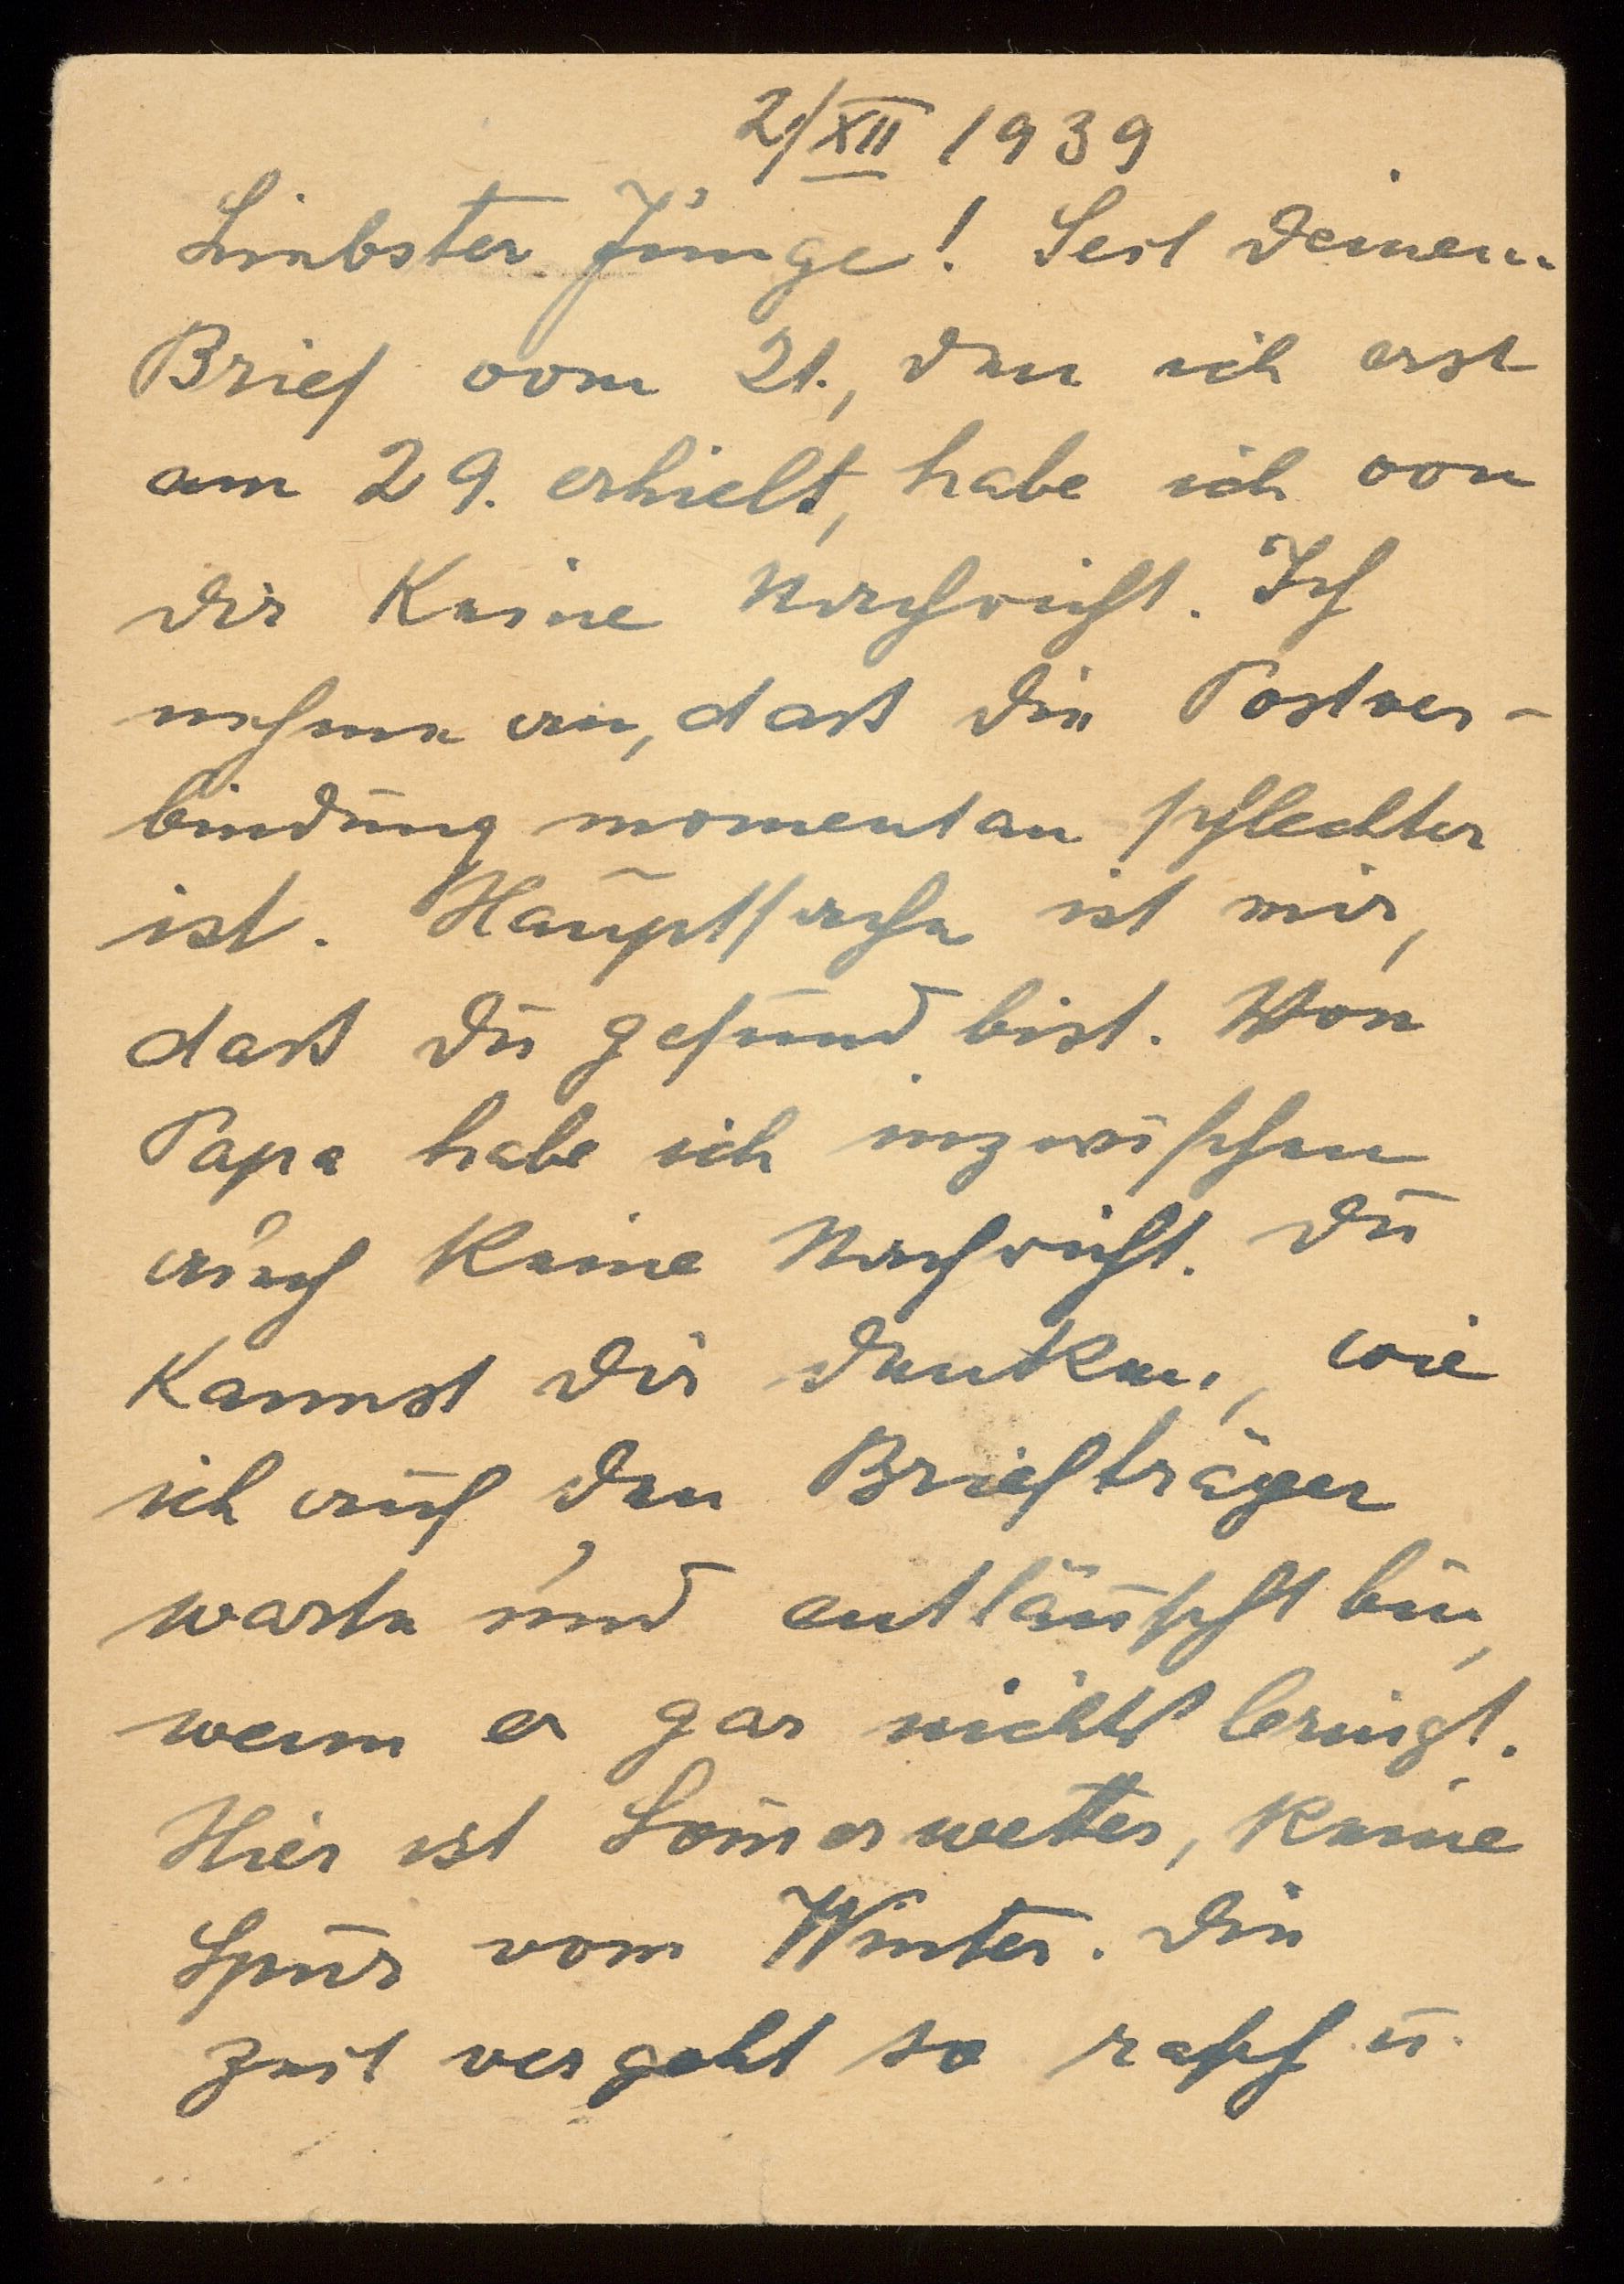 2/XII 1939
Liebster Junge! Seit Deinem
Brief vom 21., den ich erst
am 29. erhielt, habe ich von
Dir keine Nachricht. Ich
nehme an, daß die Postver-
bindung momentan schlechter
ist. Hauptsache ist mir,
daß Du gesund bist. Von
Papa habe ich inzwischen
auch keine Nachricht. Du
kannst Dir denken, wie
ich auf den Briefträger
warte und enttäuscht bin,
wenn er gar nichts bringt.
Hier ist Som̄erwetter, keine
Spur vom Winter. Die
Zeit vergeht so rasch u.